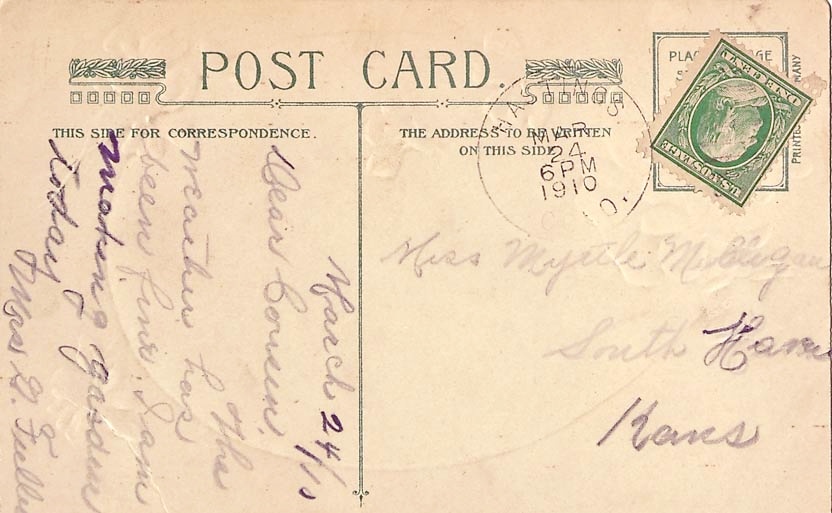 POST CARD.
THIS SIDE FOR CORRESPONDENCE.
THE ADDRESS TO BE WRITTEN
ON THIS SIDE
HASTINGS
MAR
24
6 PM
1910
O.
PLACE
U.S. POSTAGE
ONE CENT
PRINTED
MANY
March 24/10
Dear Cousin.
The
weather has
been fine. I am
making garden
today
Mrs G. Fuller
Miss Myrtle
South Haven
Kans